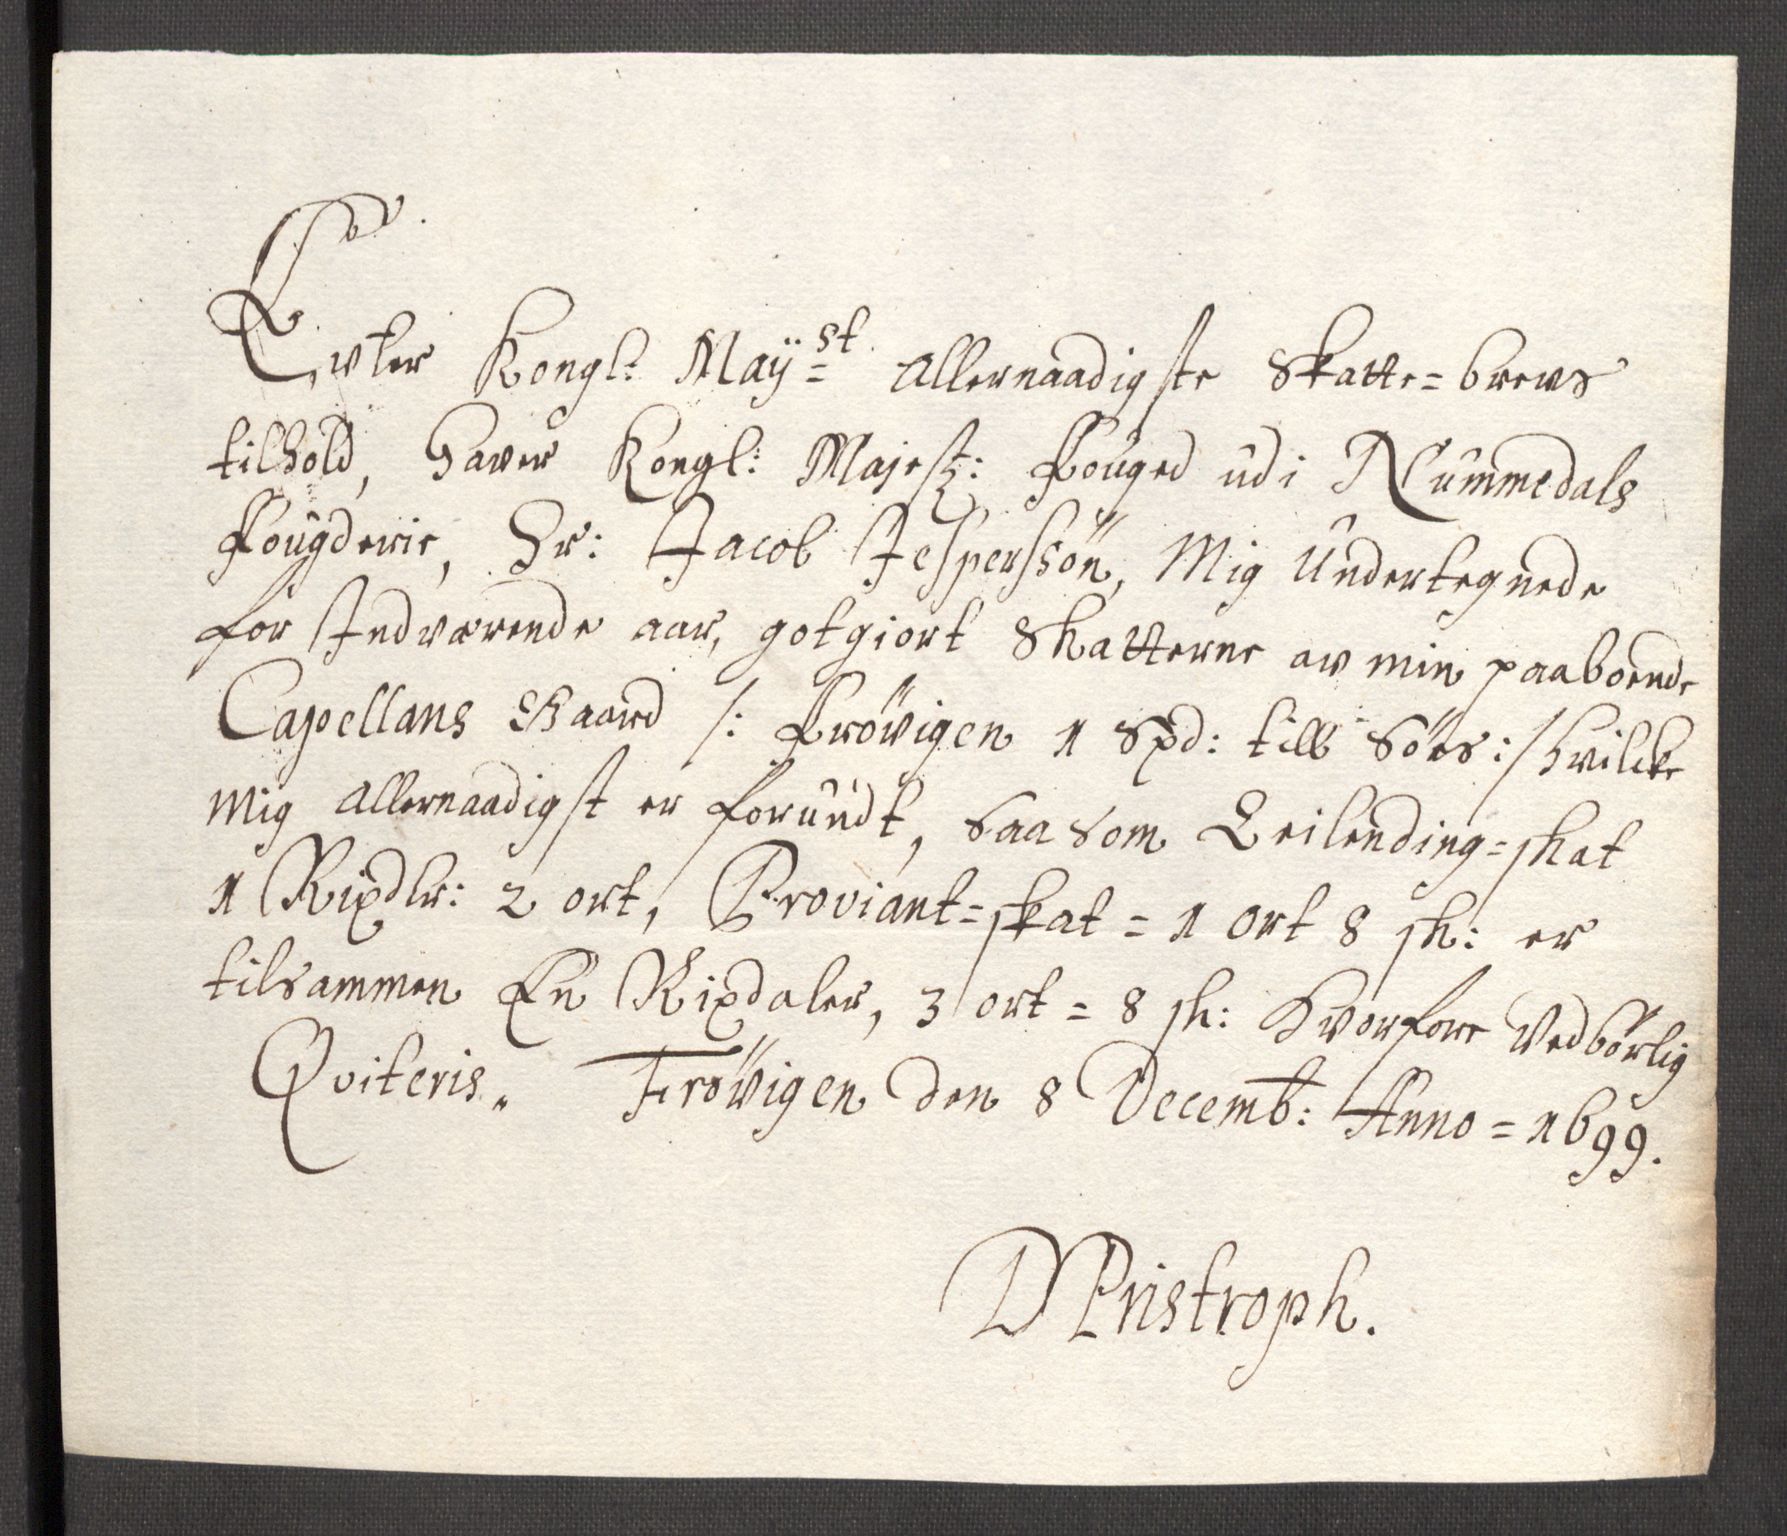 Evter Kongl: Maÿ=st Allernaadigste Skatte=brevs
tilhold, haver Kongl: Majest: Fouged udi Nummedals
Fougderie, Hr: Jacob Jesperssön, Mig Undertegnede
for Indværende aar, gotgiort Skatterne av min paaboende
Capellans Gaard /: Frövigen 1 Spd: till Söes :/ hvilcke
mig allernaadigst er forundt, saa som Leilending=skat
1 Rixdlr: 2 ort, Proviant=skat = 1 ort 8 sk: er
tilsammen En Rixdaler, 3 ort = 8 sk: Hvorfore Vedbörlig
Qviteris. Frövigen den 8 Decemb: Anno = 1699.
D Pristroph.